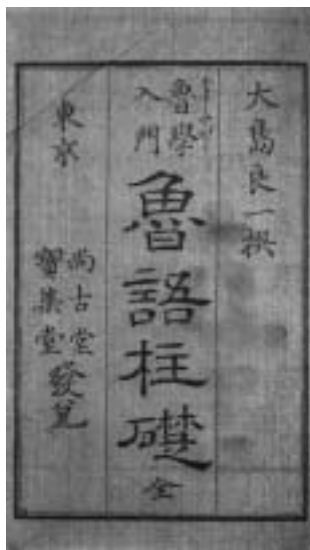 大島良一撰
魯學
入門
魯語柱礎 全
東京
尚古堂
寶集堂
發兌